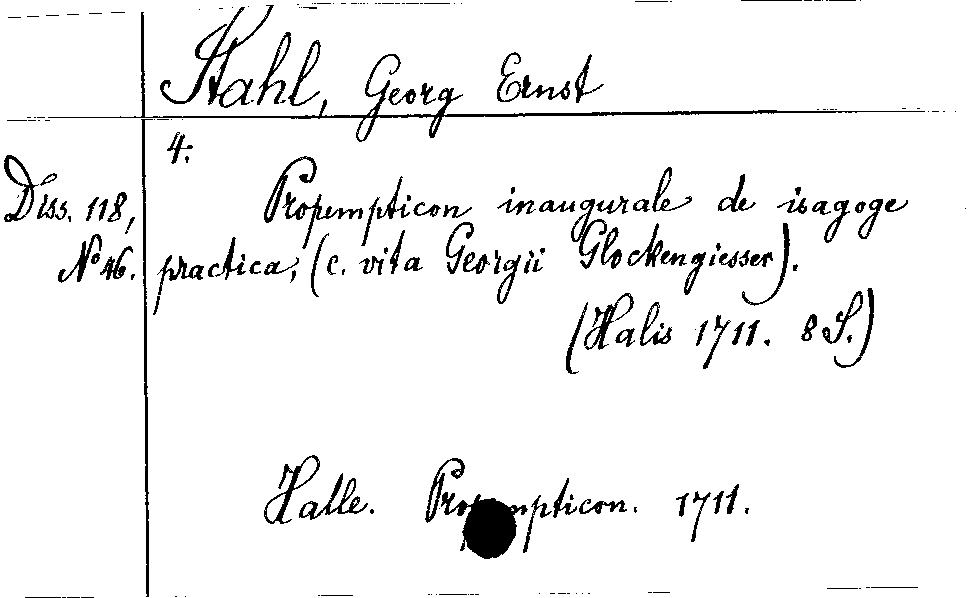 Stahl, Georg Ernst
4:
Diss. 118,
No 46.
Propempticon inaugurale de isagoge
practica, (c. vita Georgii Glockengiesser).
(Halis 1711. 8 S.)
Halle. Propempticon. 1711.